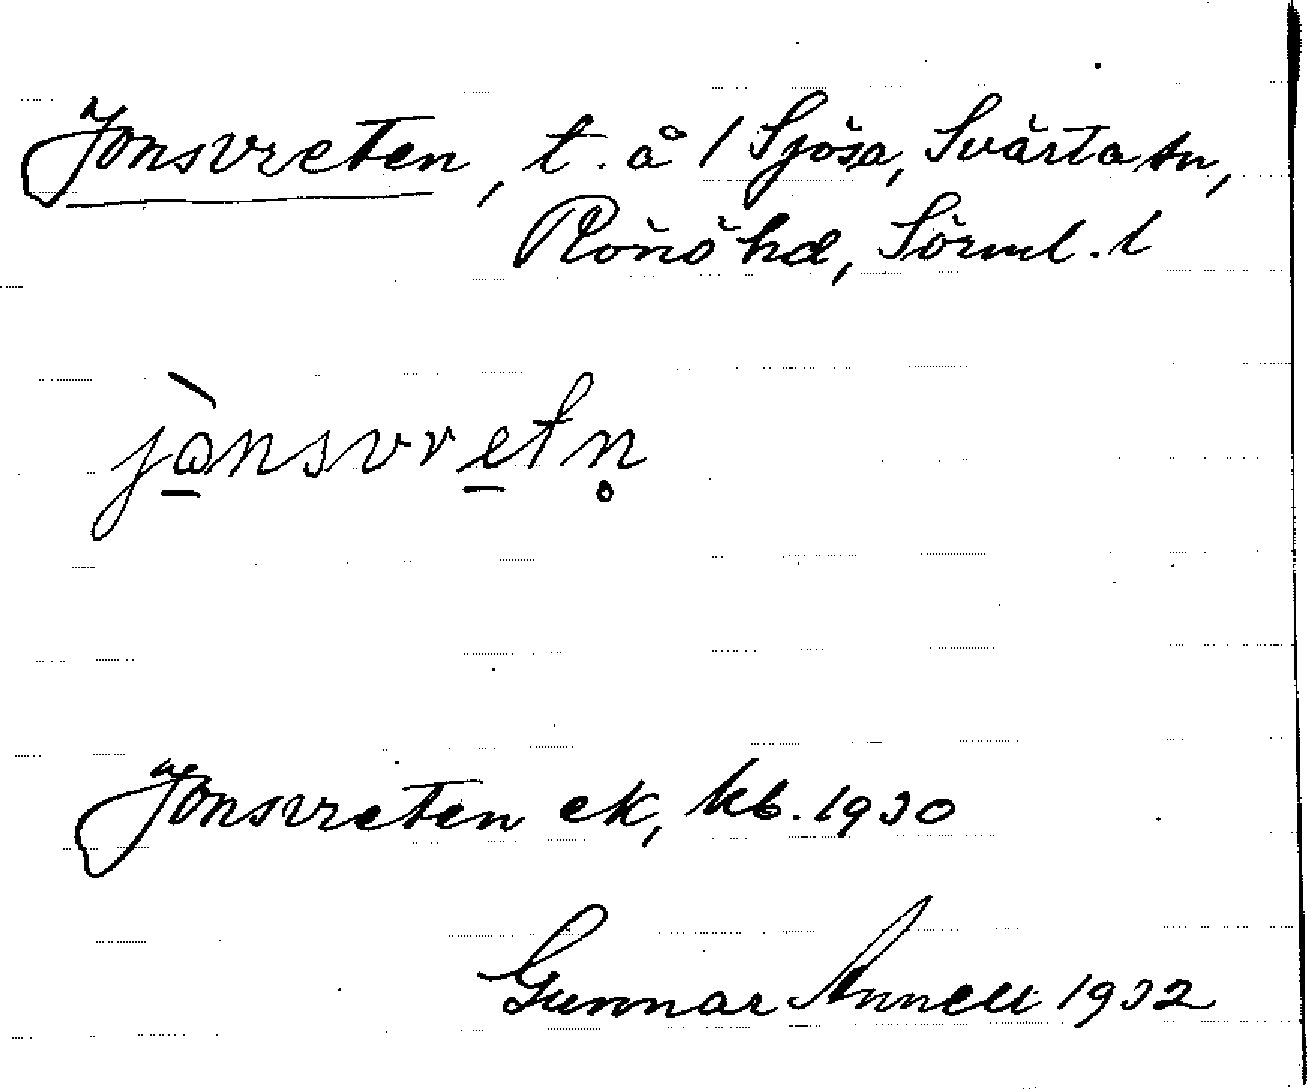 Jonsvreten, t. å 1 Sjösa, Svärta sn,
Rönö hd, Sörml. l
jànsvretn̥
Jonsvreten ek, kb. 1930
Gunnar Annell 1932